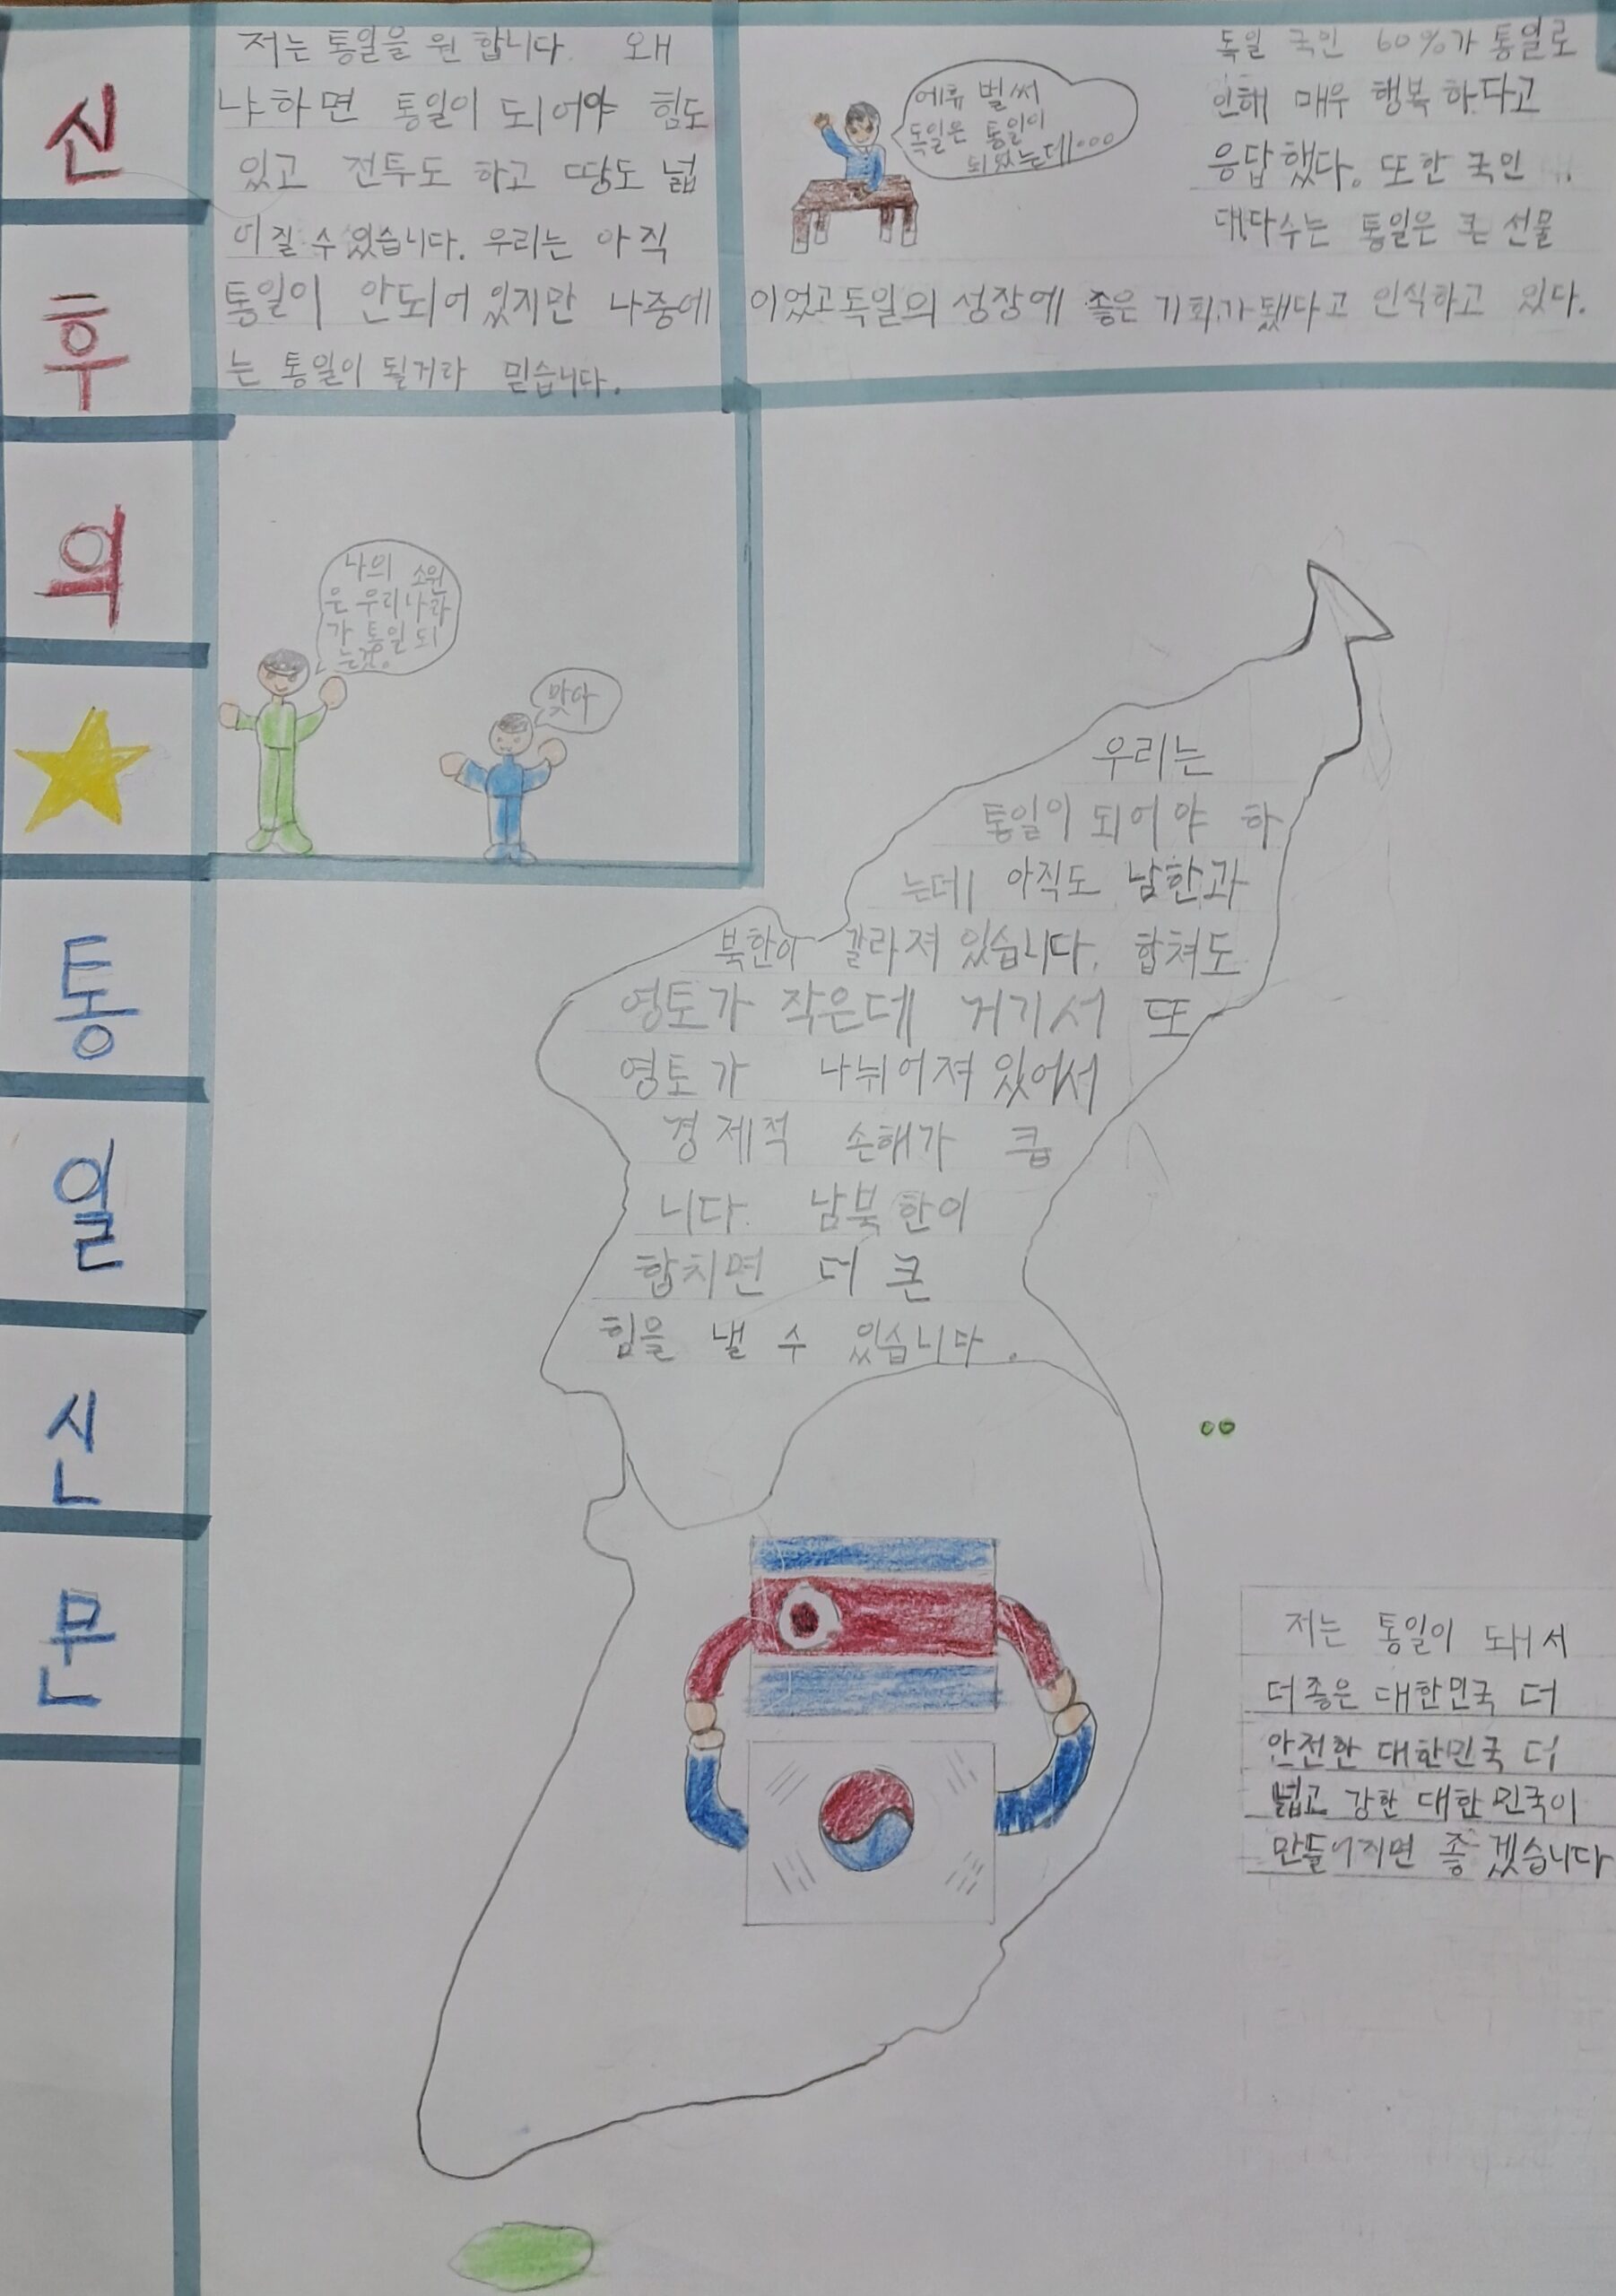 신
후
의
통
일
신
문
저는 통일을 원 합니다. 왜
냐하면 통일이 되어야 힘도
있고 전투도 하고 땅도 넓
어질 수 있습니다. 우리는 아직
통일이 안되어 있지만 나중에
는 통일이 될거라 믿습니다.
에휴 벌써
독일은 통일이
되있는데...
독일 국민 60%가 통일로
인해 매우 행복 하다고
응답했다. 또한 국민
대다수는 통일은 큰 선물
이었고 독일의 성장에 좋은 기회가 됐다고 인식하고 있다.
나의 소원
은 우리나라
가 통일 되
는것.
맞아
우리는
통일이 되어야 하
는데 아직도 남한과
북한이 갈라져 있습니다. 합쳐도
영토가 작은데 거기서 또
영토가 나뉘어져 있어서
경제적 손해가 큽
니다. 남북한이
합치면 더 큰
힘을 낼 수 있습니다.
저는 통일이 돼서
더 좋은 대한민국 더
안전한 대한민국 더
넓고 강한 대한민국이
만들어지면 좋겠습니다